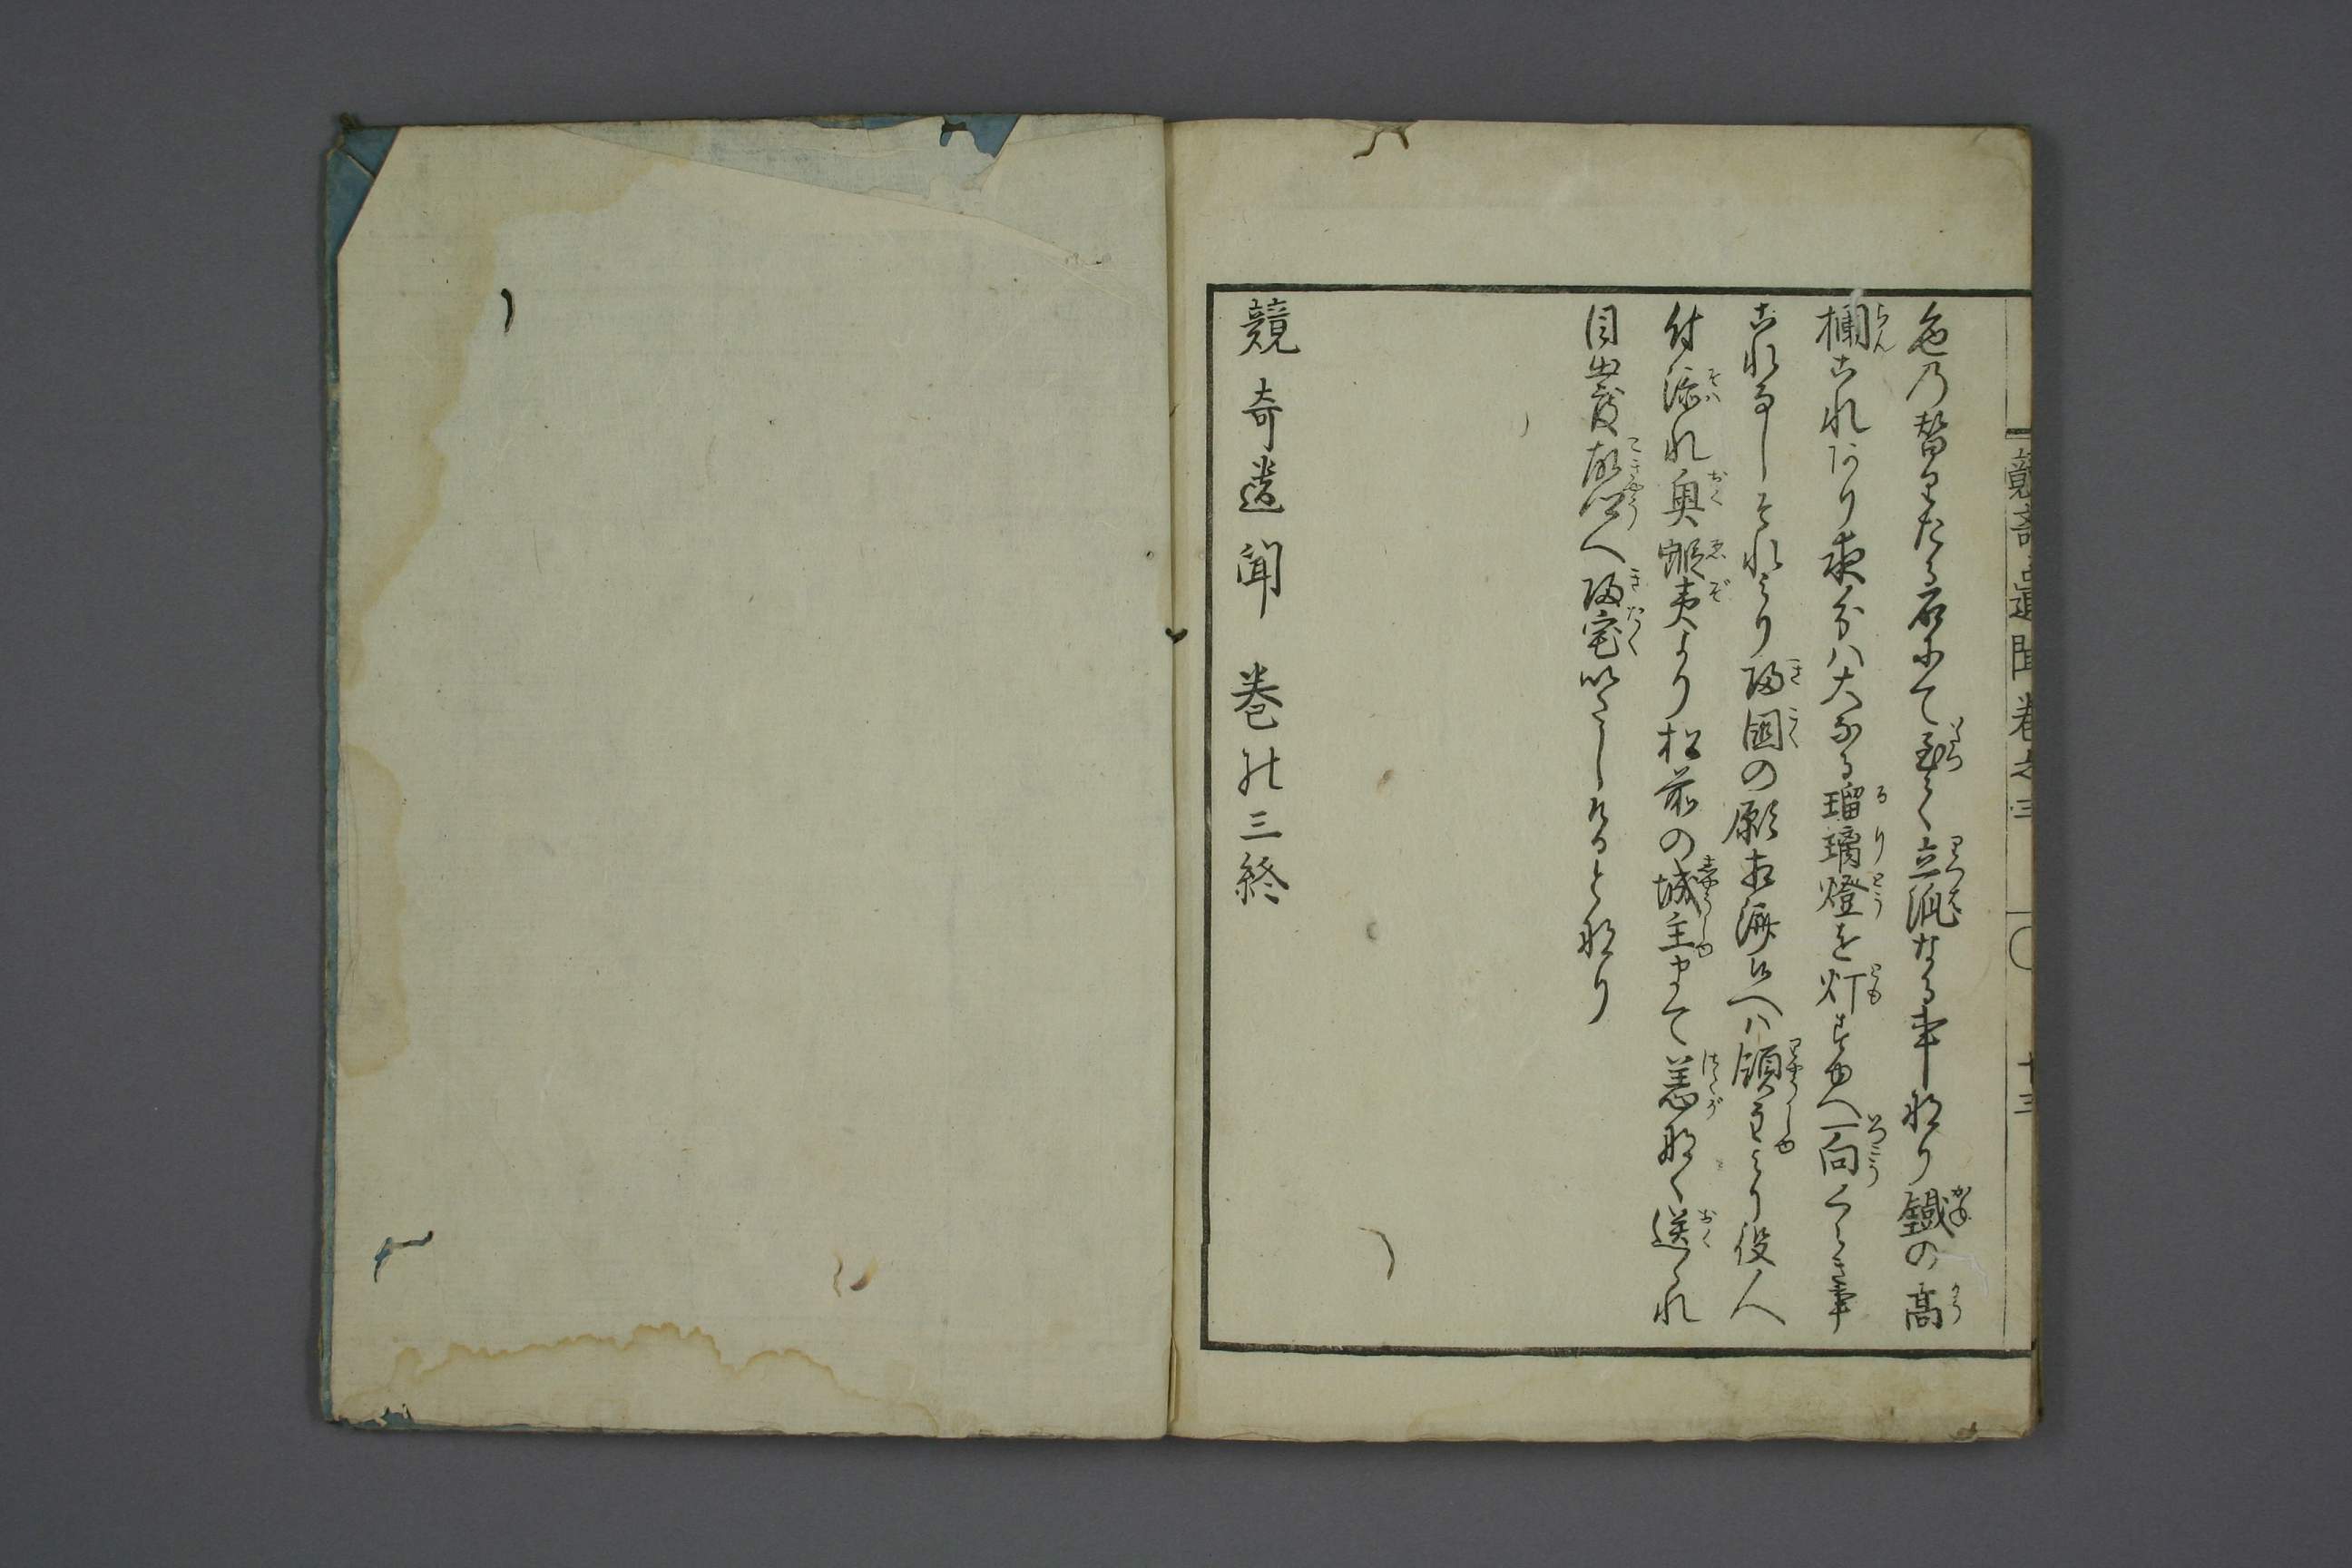 競奇遺聞巻之三　十三
色乃替りたる石にて至て立派なる事なり鐵の高
欄これあり夜分ハ大なる瑠璃燈を灯すゆへ一向くらき事
これなしそれより帰國の願相済候へハ領主より役人
付添れ奥蝦夷より松前の城主まて恙なく送られ
目出度故郷へ帰宅いたしけると也
競奇遺聞　巻之三終